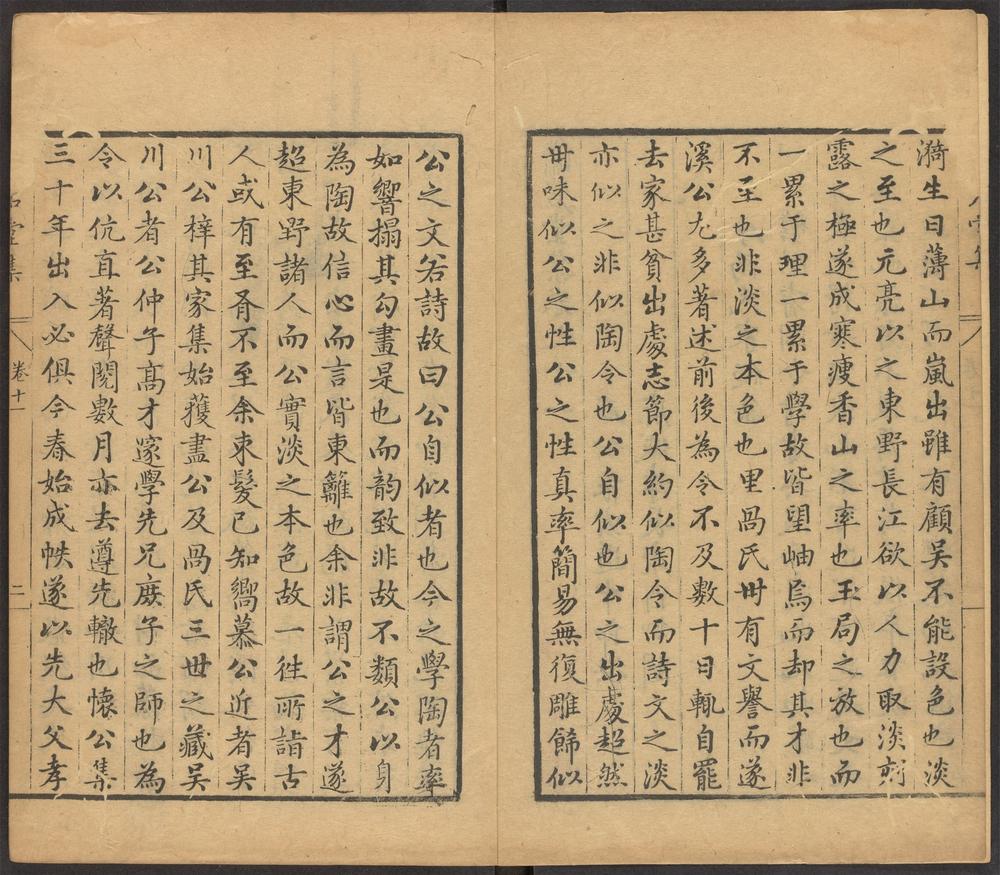 漪生日薄山而嵐出雖有顧吳不能設色也淡
之至也元亮以之東野長江欲以人力取淡刻
露之極遂成寒瘦香山之率也玉局之放也而
一累于理一累于學故皆望岫焉而却其才非
不至也非淡之本色也里咼氏丗有文譽而遂
溪公尤多著述前後為令不及數十日輒自罷
去家甚貧出處志節大約似陶令而詩文之淡
亦似之非似陶令也公自似也公之出處超然
丗味似公之性公之性真率簡易無復雕餙似
公之文若詩故曰公自似者也今之學陶者率
如響搨其勾畫是也而韵致非故不類公以身
為陶故信心而言皆東籬也余非謂公之才遂
超東野諸人而公實淡之本色故一徃所詣古
人或有至有不至余束髮已知嚮慕公近者吳
川公梓其家集始獲盡公及咼氏三丗之藏吳
川公者公仲子高才邃學先兄庶子之師也為
令以伉直著聲閱數月亦去遵先轍也懷公集
三十年出入必俱今春始成帙遂以先大父孝
卷十一
二